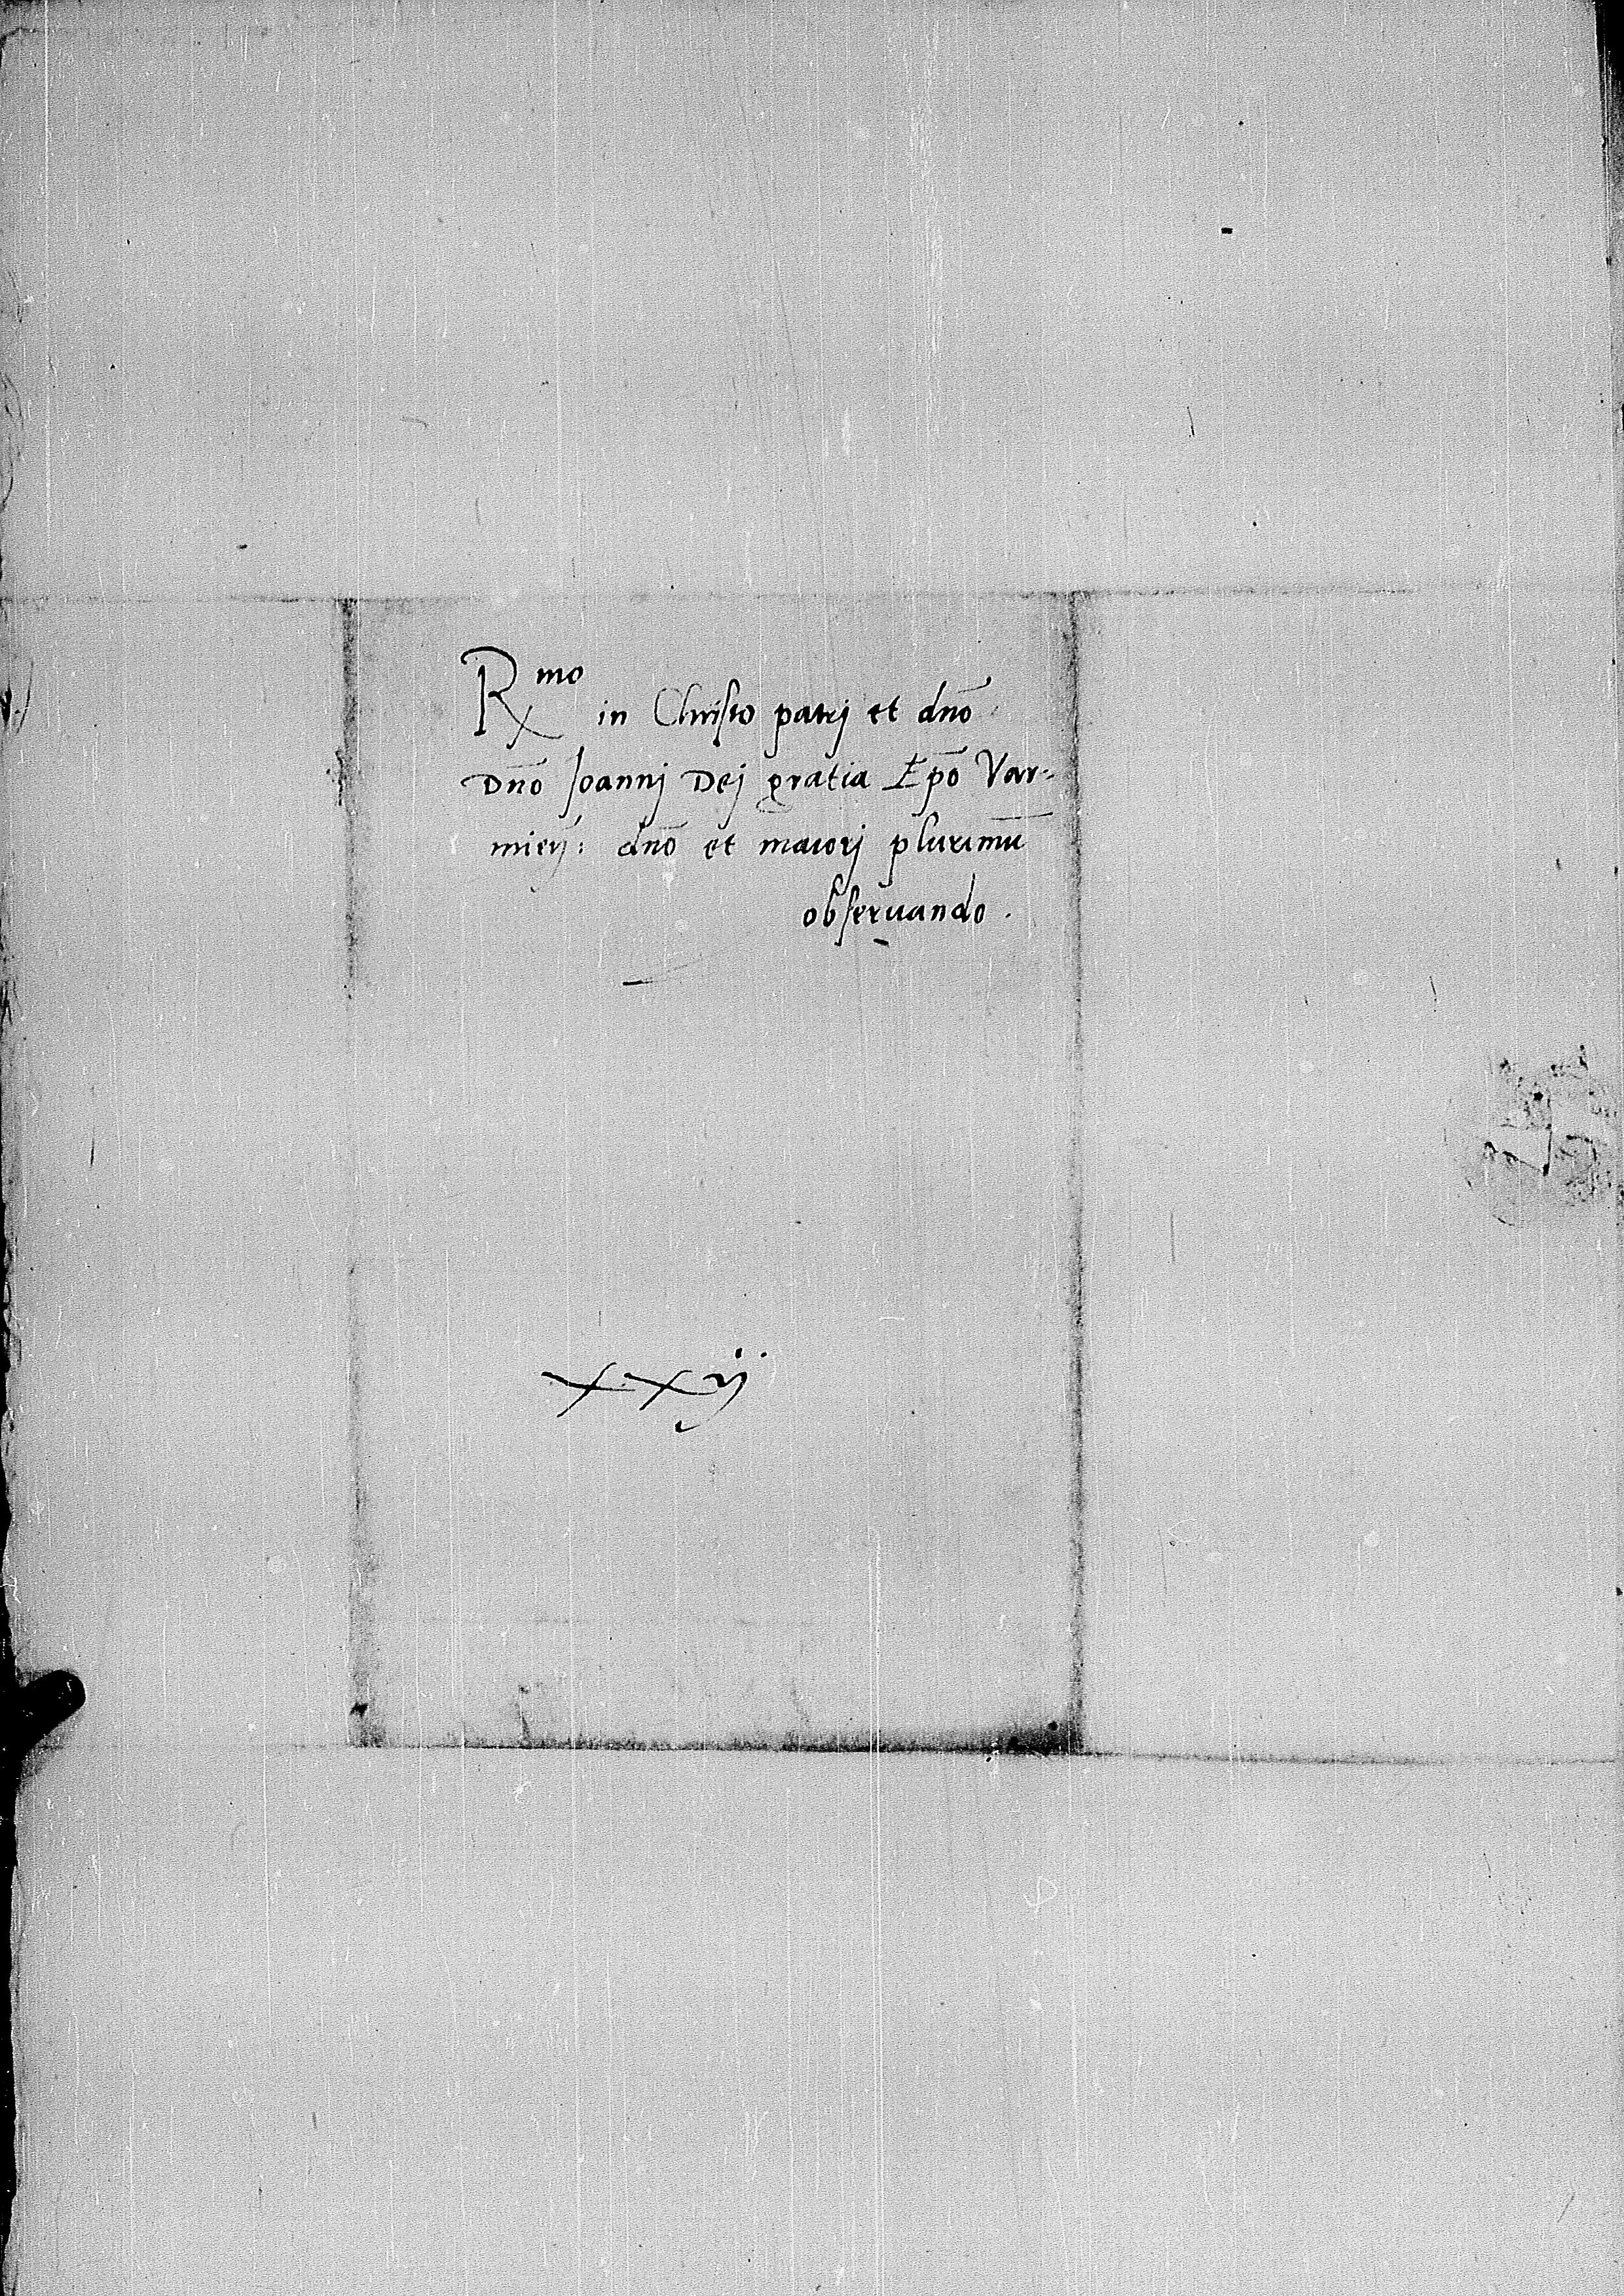 Rmo in Christo patrj et dno
Dno Joannj Dej gratia Epo Var=
mien: dno et maiorj plurimu
obseruando.
xxij